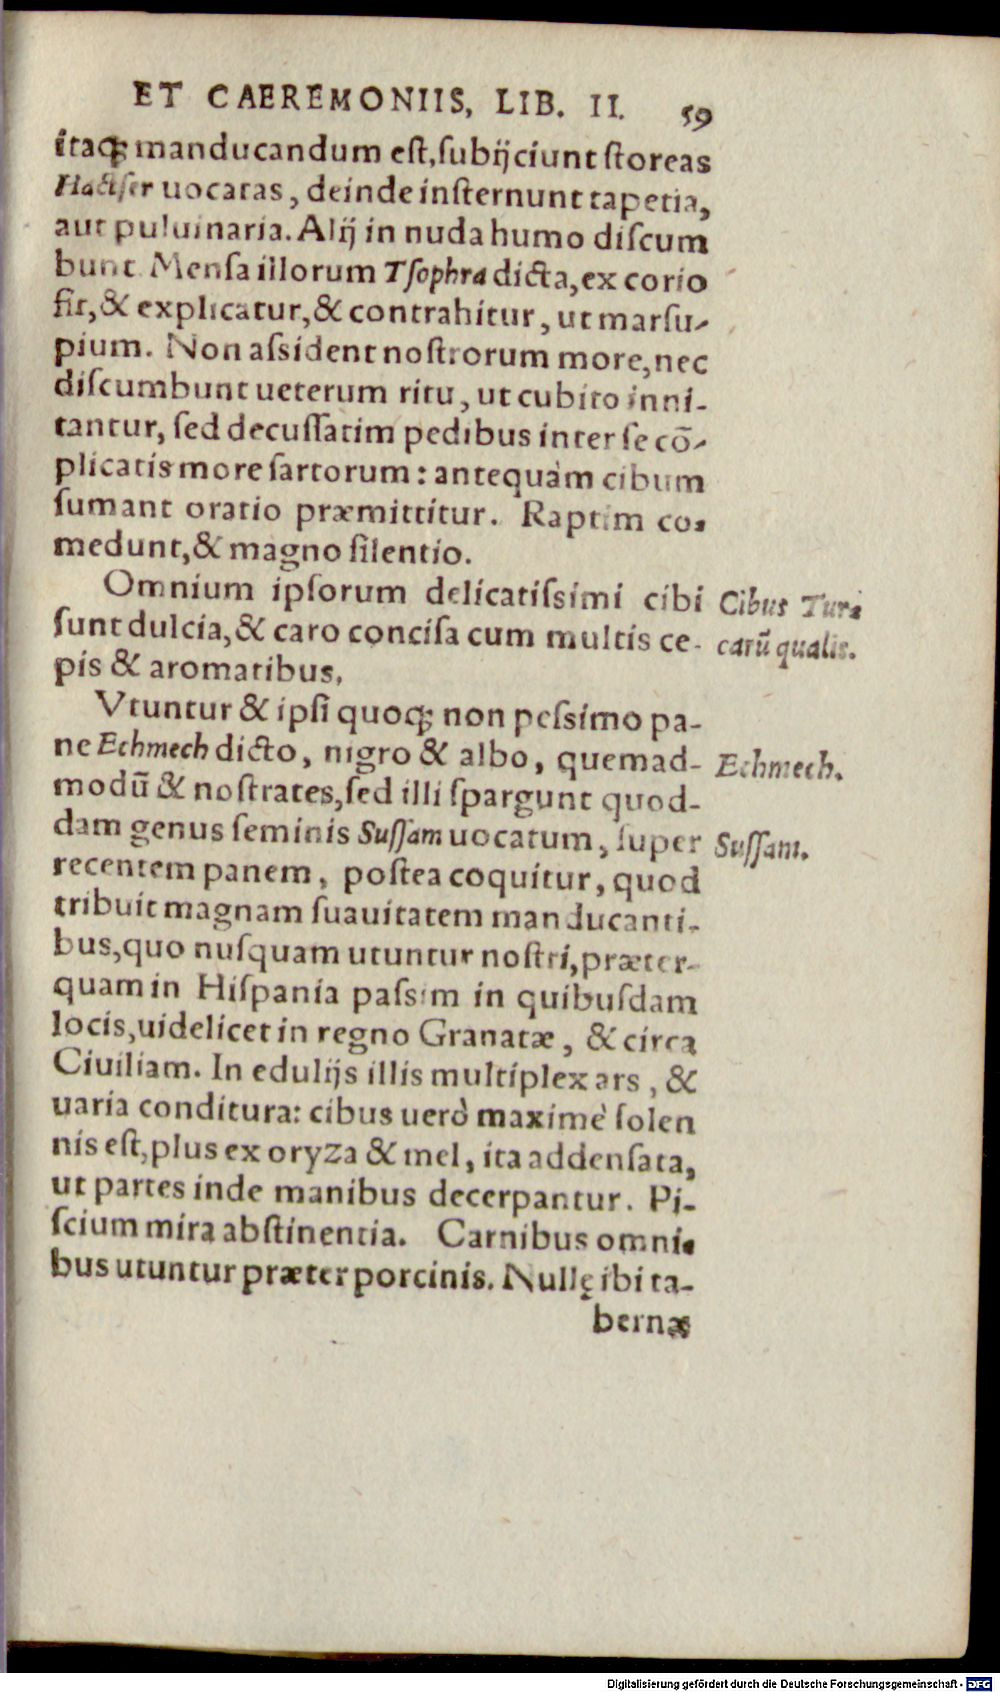 ET CAEREMONIIS, LIB. II. 59
itaqꝫ manducandum est, subijciunt storeas
Hactser uocatas, deinde insternunt tapetia,
aut puluinaria. Alij in nuda humo discum
bunt. Mensa illorum Tsophra dicta, ex corio
fit, & explicatur, & contrahitur, ut marsu-
pium. Non assident nostrorum more, nec
discumbunt ueterum ritu, ut cubito inni-
tantur, sed decussatim pedibus inter se cō-
plicatis more sartorum: antequàm cibum
sumant oratio præmittitur. Raptim co-
medunt, & magno silentio.
Omnium ipsorum delicatissimi cibi
Cibus Tur-
sunt dulcia, & caro concisa cum multis ce-
carū qualis.
pis & aromatibus.
Vtuntur & ipsi quoqꝫ non pessimo pa-
ne Echmech dicto, nigro & albo, quemad-
Echmech.
modū & nostrates, sed illi spargunt quod-
dam genus seminis Sussam uocatum, super
Sussam.
recentem panem, postea coquitur, quod
tribuit magnam suauitatem manducanti-
bus, quo nusquam utuntur nostri, præter-
quam in Hispania passim in quibusdam
locis, uidelicet in regno Granatæ, & circa
Ciuiliam. In edulijs illis multiplex ars, &
uaria conditura: cibus uerò maximè solen
nis est, plus ex oryza & mel, ita addensata,
ut partes inde manibus decerpantur. Pi-
scium mira abstinentia. Carnibus omni-
bus utuntur præter porcinis. Nullę ibi ta-
bernæ
Digitalisierung gefördert durch die Deutsche Forschungsgemeinschaft - DFG